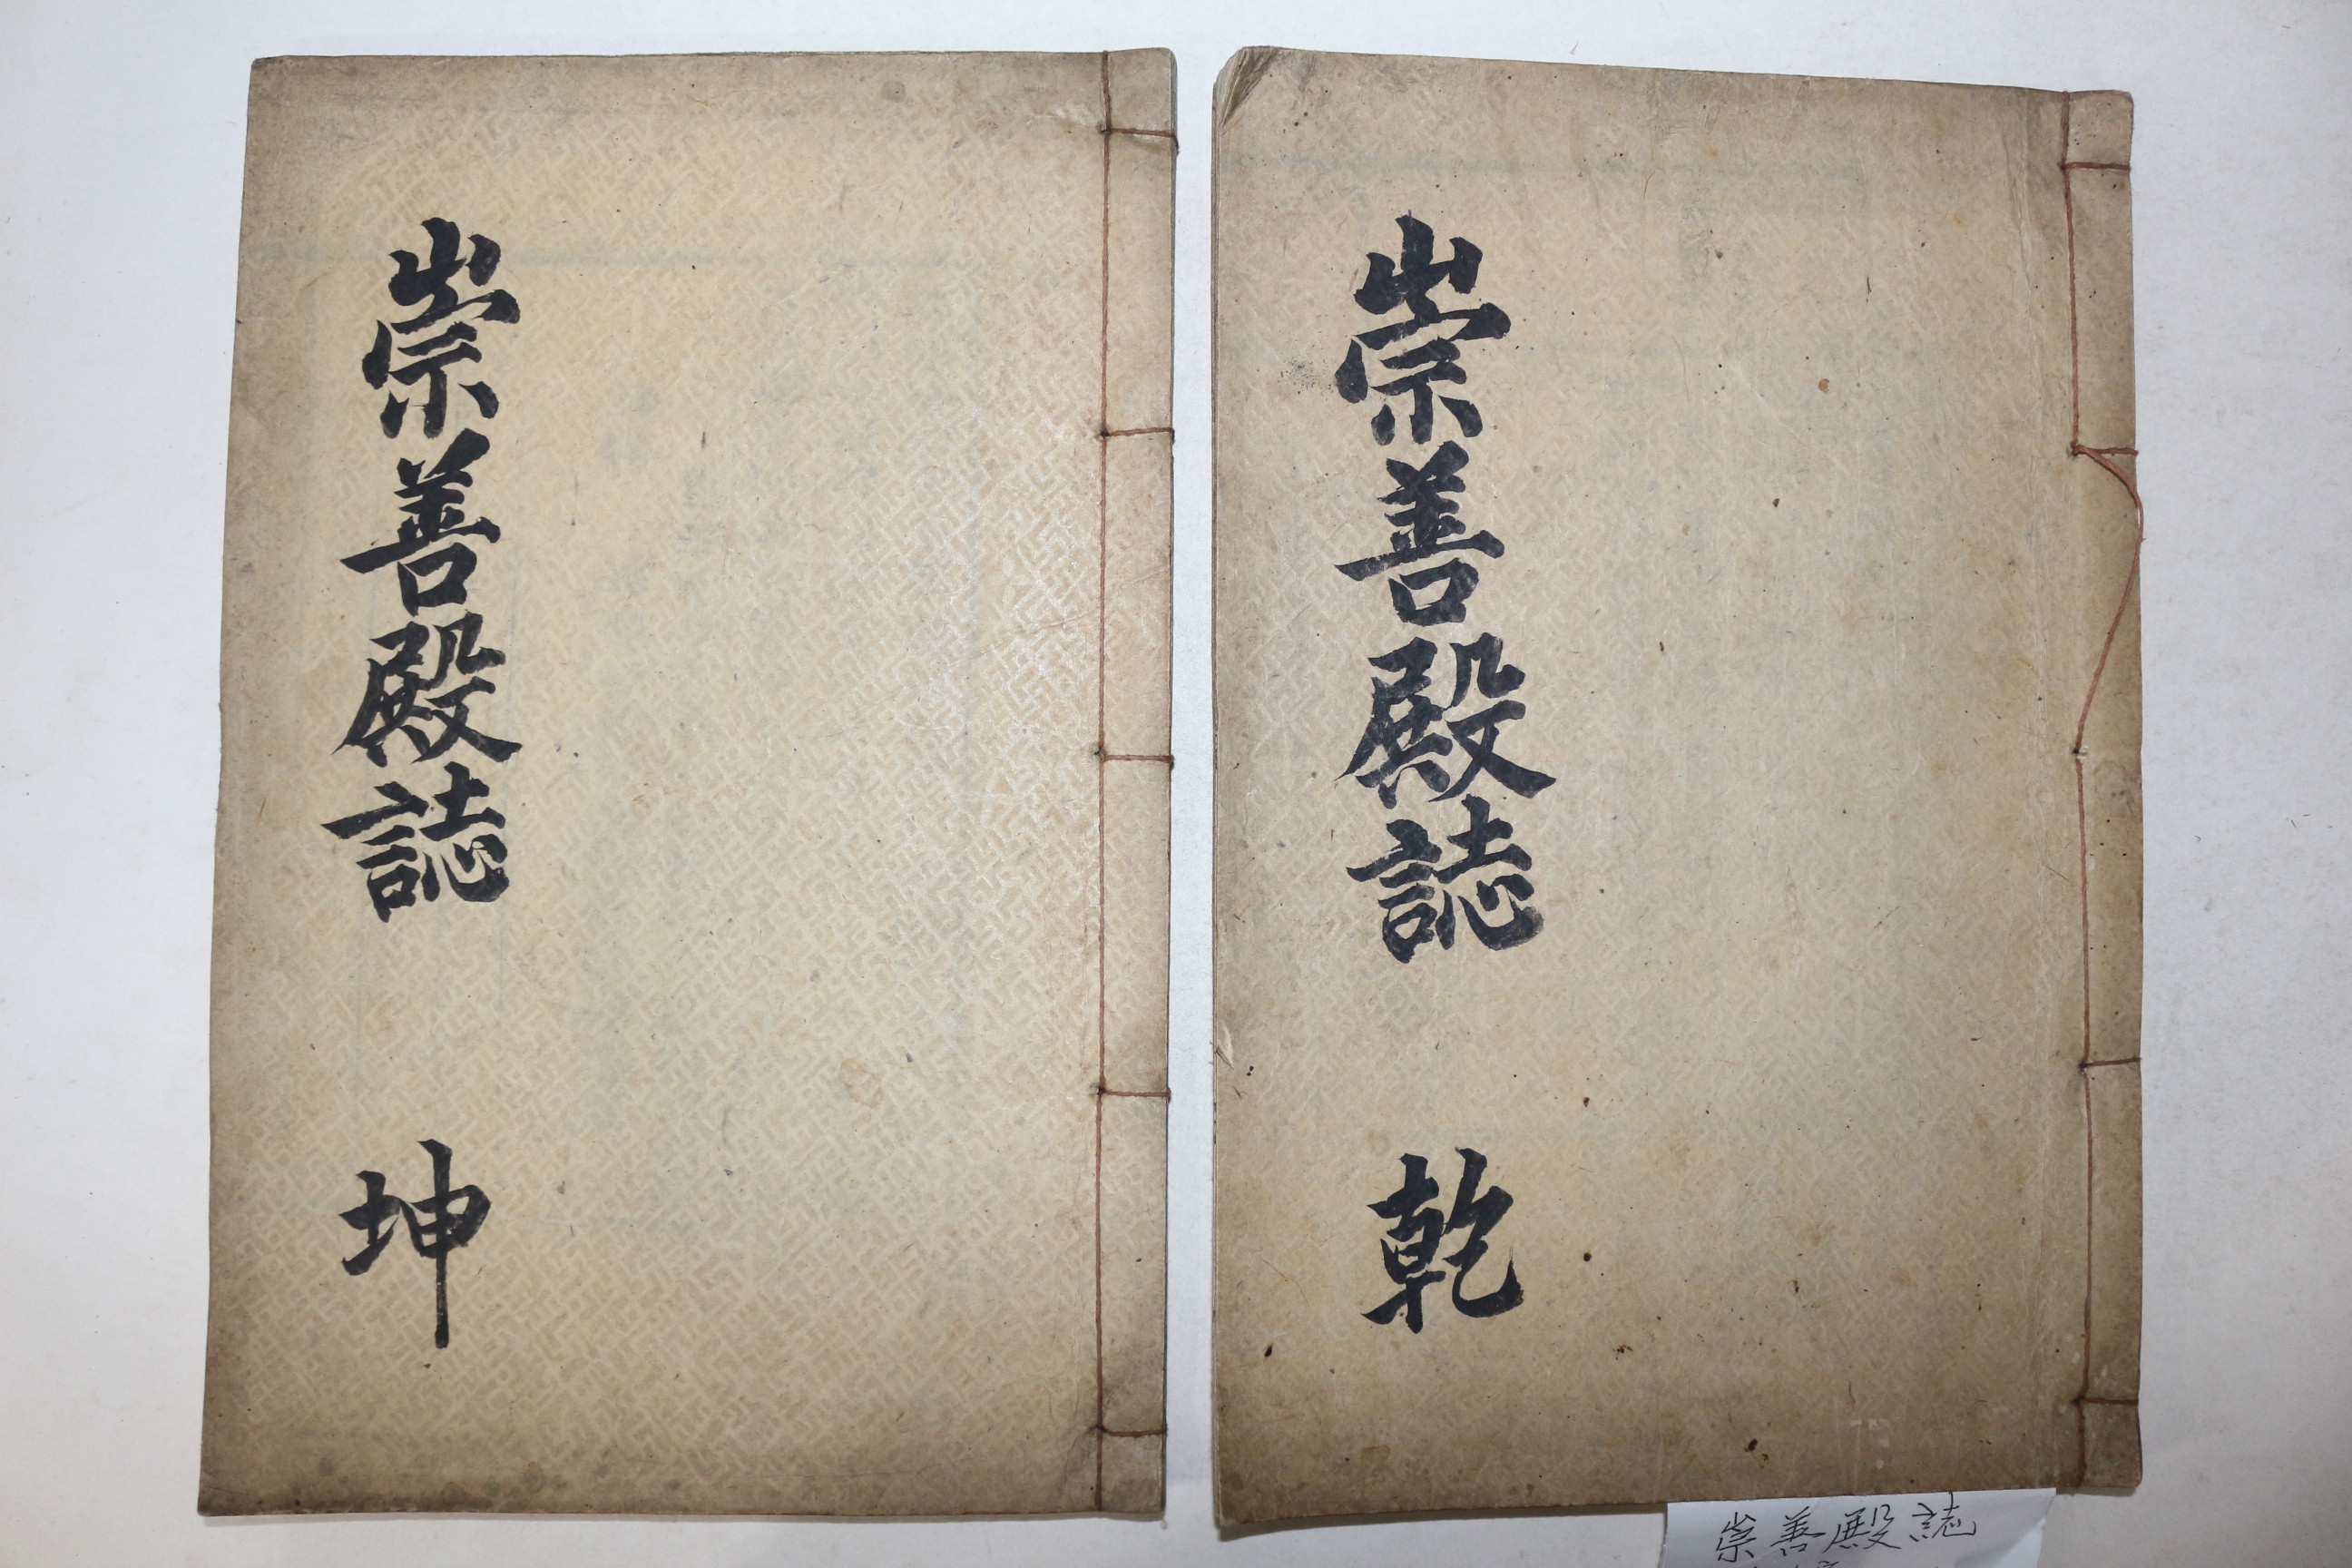 崇善殿誌
乾
崇善殿誌
坤
崇善殿誌